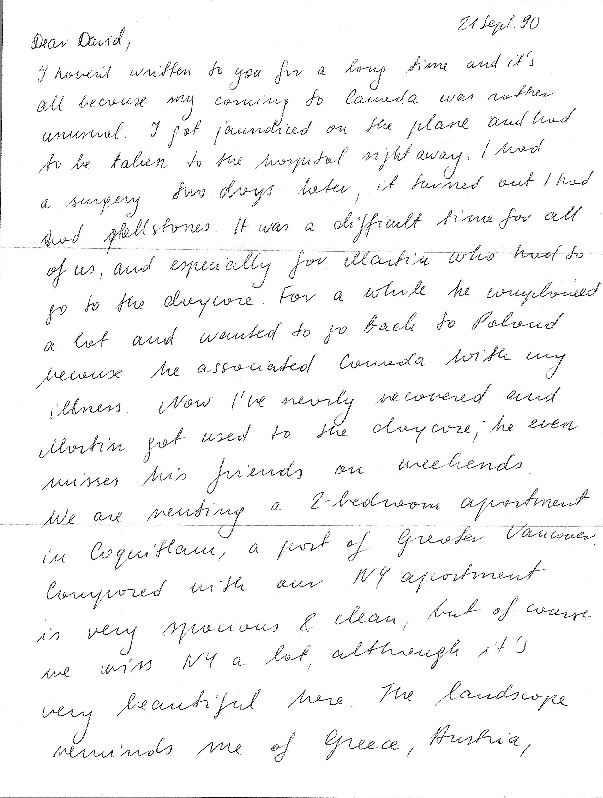 21 Sept. 90
Dear David,
I haven't written to you for a long time and it's
all because my coming to Canada was rather
unusual. I got jaundiced on the plane and had
to be taken to the hospital right away. I had
a surgery two days later, it turned out I had
had gallstones. It was a difficult time for all
of us, and especially for Martin who had to
go to the daycare. For a while he complained
a lot and wanted to go back to Poland
because he associated Canada with my
illness. Now I've nearly recovered and
Martin got used to the daycare; he even
misses his friends on weekends.
We are renting a 2-bedroom apartment
in Coquitlam, a part of Greater Vancouver.
Compared with our NY apartment
is very spacious & clean, but of course
we miss NY a lot, although it's
very beautiful here. The landscape
reminds me of Greece, Austria,